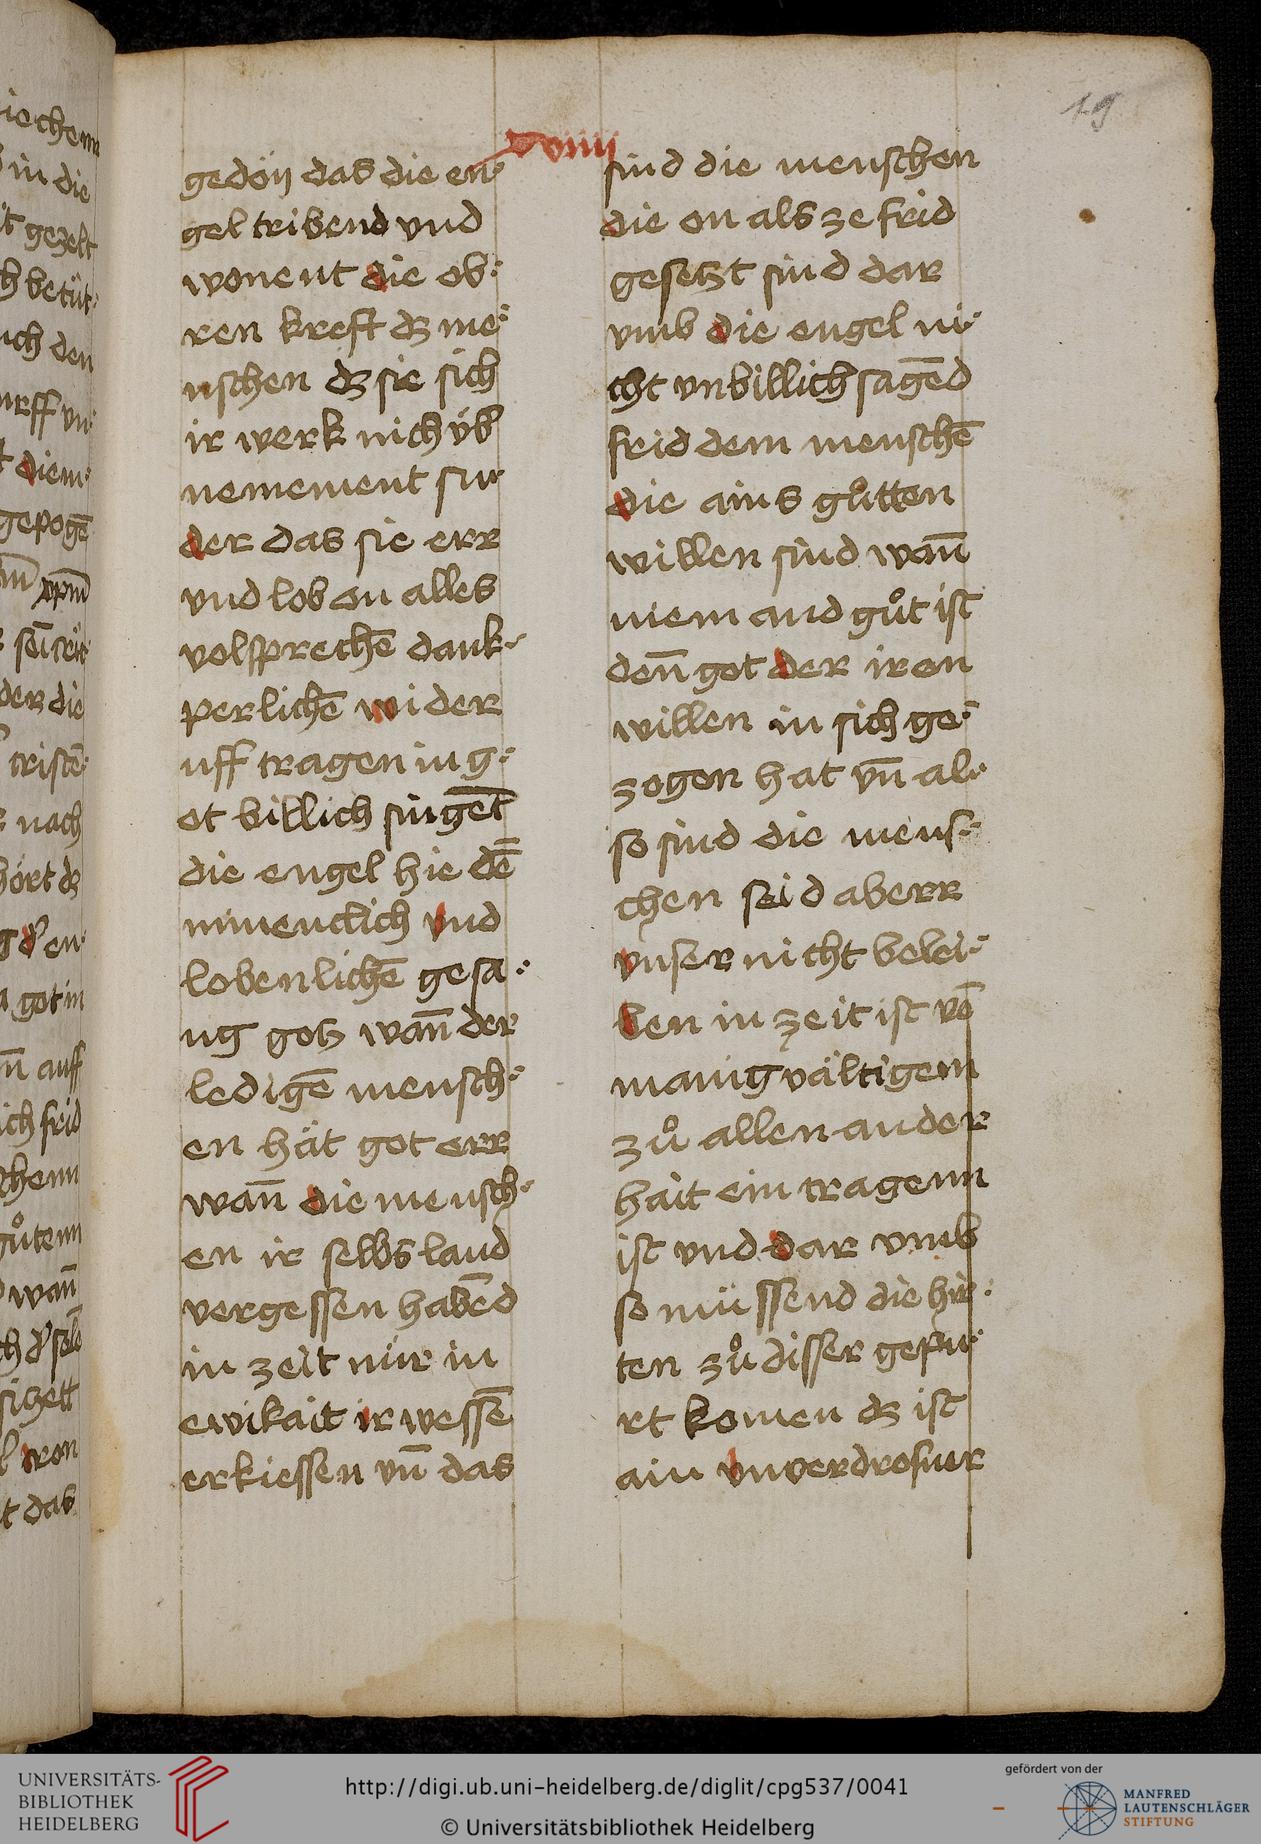 19
xviiij
gedöÿ das die en⸗
gel tribend vnd
wonent die ob⸗
ren kreft dz me⸗
nschen dz sie sich
ir werk nich v́b̛
nemement sun⸗
der das sie err
vnd lob on alles
volsprechē dank⸗
perlichē wider
uff tragen in g⸗
ot billich singēt
die engel hie dē
minencklich vnd
lobenlichē gesa⸗
ng gotz wañ der
ledigē mensch⸗
en hät got err
wañ die mensch⸗
en ir selbs laud
vergessen habēd
in zeit nür in
ewikait ir wessē
erkiessen vn̄ das
sind die menschen
die on als ze frid
gesetzt sind dar
vmb die engel ni⸗
cht vnbillich sagēd
frid dem menschē
die ains gůtten
willen sind wañ
niemand gůt ist
den̄ got der iren
willen in sich ge⸗
zogen hat vn̄ al⸗
so sind die mens⸗
chen seid aberr
vnser nicht belei⸗
ben in zeit ist vō
manigvältigem
zů allen ander
hait ein tragenn
ist vnd dar vmb
so müssend die hir⸗
ten zů disser gepu⸗
rt komen dz ist
ain vnverdrosner
iechenn
in die
t gezelt
h betüt⸗
uch den
urff vn⸗
diem⸗
gepogē
der die
tristē⸗
nach
hört dz
got in
n̄ auff
ich frid
chenn
gůtenn
wañ
sitzett
t das
UNIVERSITÄTS-
BIBLIOTHEK
HEIDELBERG
http://digi.ub.uni-heidelberg.de/diglit/cpg537/0041
© Universitätsbibliothek Heidelberg
gefördert von der
MANFRED
LAUTENSCHLÄGER
STIFTUNG